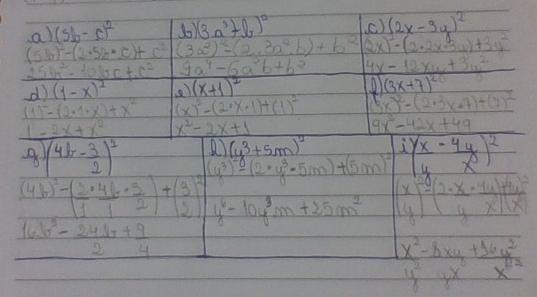 a) (5b - c)²
(5b)² - (2·5b·c) + c²
25b² - 10bc + c²
b) (3a² + b)²
(3a²)² - (2·3a²b) + b²
9a⁴ - 6a²b + b²
c) (2x - 3y)²
(2x)² - (2·2x·3y) + 3y²
4x - 12xy + 3y²
d) (1 - x)²
(1)² - (2·1·x) + x²
1 - 2x + x²
e) (x + 1)²
(x)² - (2·x·1) + (1)²
x² - 2x + 1
f) (3x + 7)²
(3x)² - (2·3x·7) + (7)²
9x² - 42x + 49
g) (4b - 3/2)²
(4b)² - (2/1·4b/1·3/2) + (3/2)²
16b² - 24b/2 + 9/4
h) (y³ + 5m)²
(y³)² - (2·y³·5m) + (5m)²
y⁶ - 10y³m + 25m²
i) (x/y - 4y/x)²
(x/y)² - (2·x/y·4y/x) + (4y/x)²
x²/y² - 8xy/yx + 16y²/x²